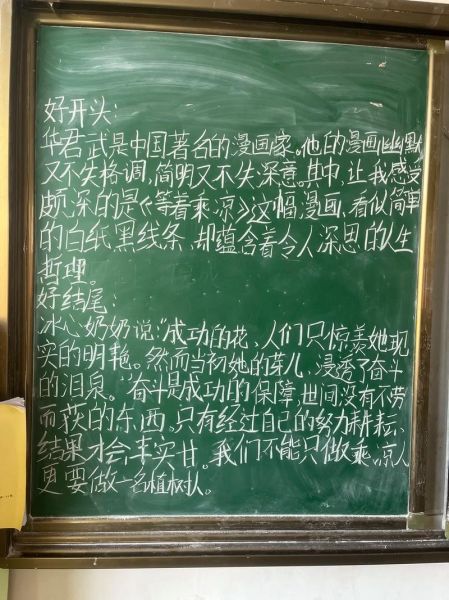 好开头：
华君武是中国著名的漫画家。他的漫画幽默
又不失格调，简明又不失深意。其中，让我感受
颇深的是《等着乘凉》这幅漫画，看似简单
的白纸黑线条，却蕴含着令人深思的人生
哲理。
好结尾：
冰心奶奶说：“成功的花，人们只惊羡她现
实的明艳。然而当初她的芽儿，浸透了奋斗
的泪泉。”奋斗是成功的保障，世间没有不劳
而获的东西，只有经过自己的努力耕耘、
结果才会丰实甘。我们不能只做乘凉人
更要做一名植树人。